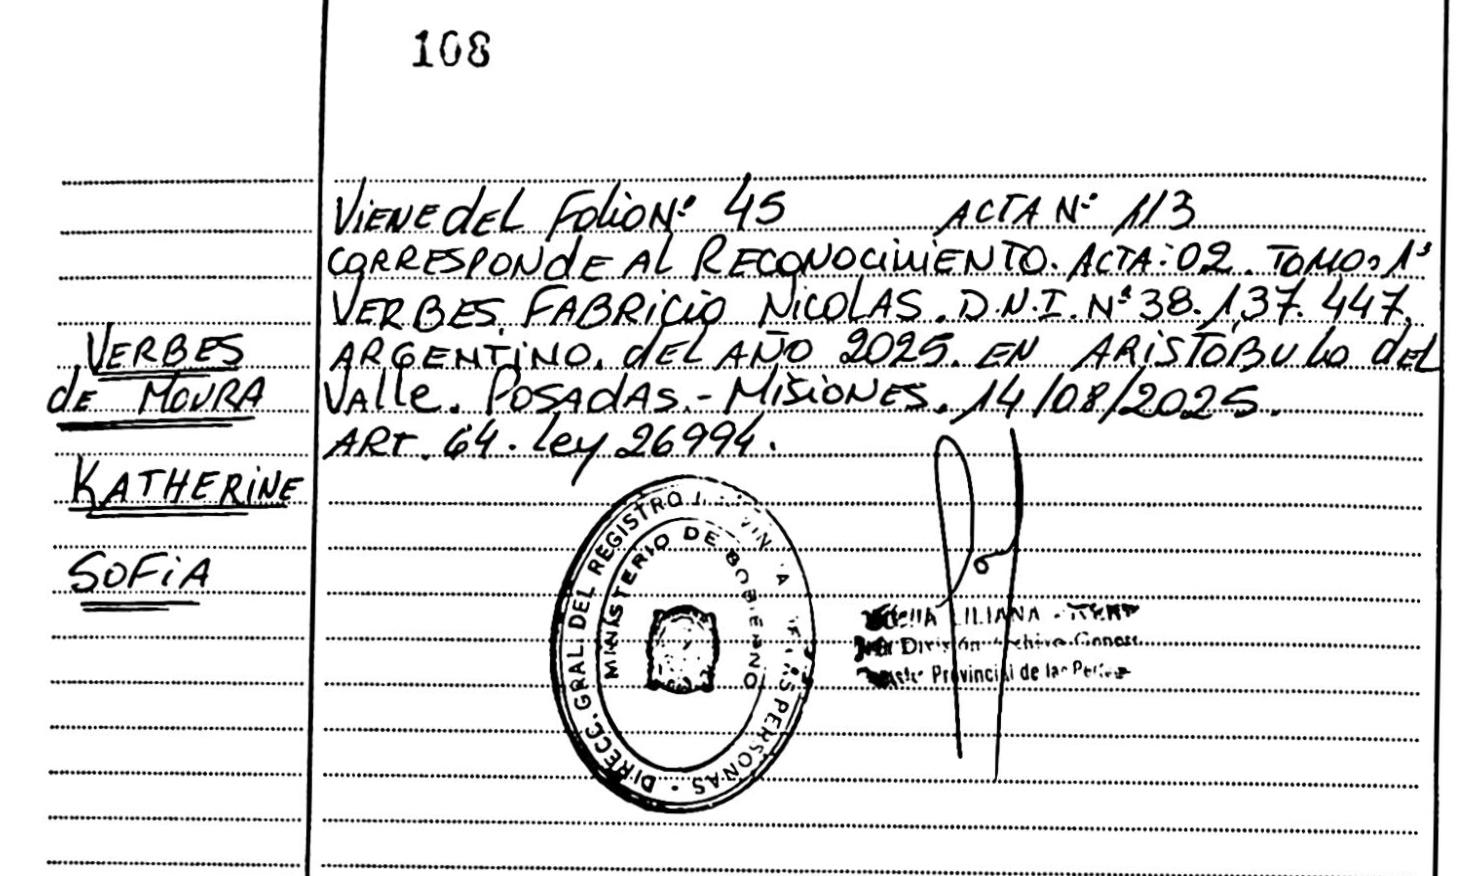 108
VIENE DEL FOLIO Nº 45 ACTA Nº 113
CORRESPONDE AL RECONOCIMIENTO. ACTA: 02. TOMO: 1º
VERBES. FABRICIO NICOLAS. D.N.I. Nº 38.137.447.
ARGENTINO. DEL AÑO 2025. EN ARISTOBULO DEL
Valle. POSADAS.- MISIONES. 14/08/2025.
ART. 64. Ley 26994.
VERBES
de MOURA
KATHERINE
SOFIA
DIRECC. GRAL. DEL REGISTRO PERSONAS
MINISTERIO DE GOBIERNO
LILIANA
División
Provincial de las